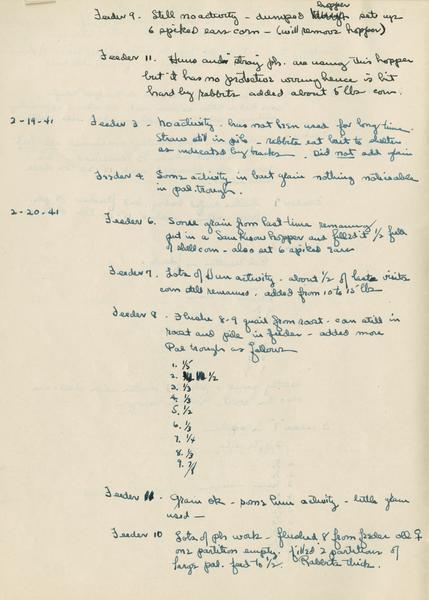 Feeder 9. Still no activity - dumped hopper set up
6 spiked ears corn - (will remove hopper)
Feeder 11. Huns and stray ph. are using this hopper
but it has no protective wiring hence is hit
hard by rabbits added about 5 lbs corn.
2-19-41 Feeder 3 - No activity - has not been used for long time.
Straw still in pile - rabbits eat bait to shelter
as indicated by tracks. Did not add grain
Feeder 4. Some activity in but grain nothing noticeable
in pal. trough.
2-20-41 Feeder 6. Some grain from last time remaining
put in a hopper and filled it 1/2 full
of shell corn - also set 6 spiked ears
Feeder 7. Lots of Hun activity - about 1/2 of last visits
corn still remains. added from 10 to 15 lbs
Feeder 8 Flushed 8-9 quail from roost - corn still in
roost and pile in feeder - added more
Pal troughs as follows
1. 1/5
2. 1/2
3. 1/3
4. 1/3
5. 1/2
6. 1/3
7. 1/4
8. 1/3
9. 7/8
Feeder 11. Grain ok - some hun activity - little grain
used -
Feeder 10 Lots of ph work - flushed 8 from feeder all
one partition empty. filled 2 partitions of
large pal. feed to 1/2. Rabbits thick.